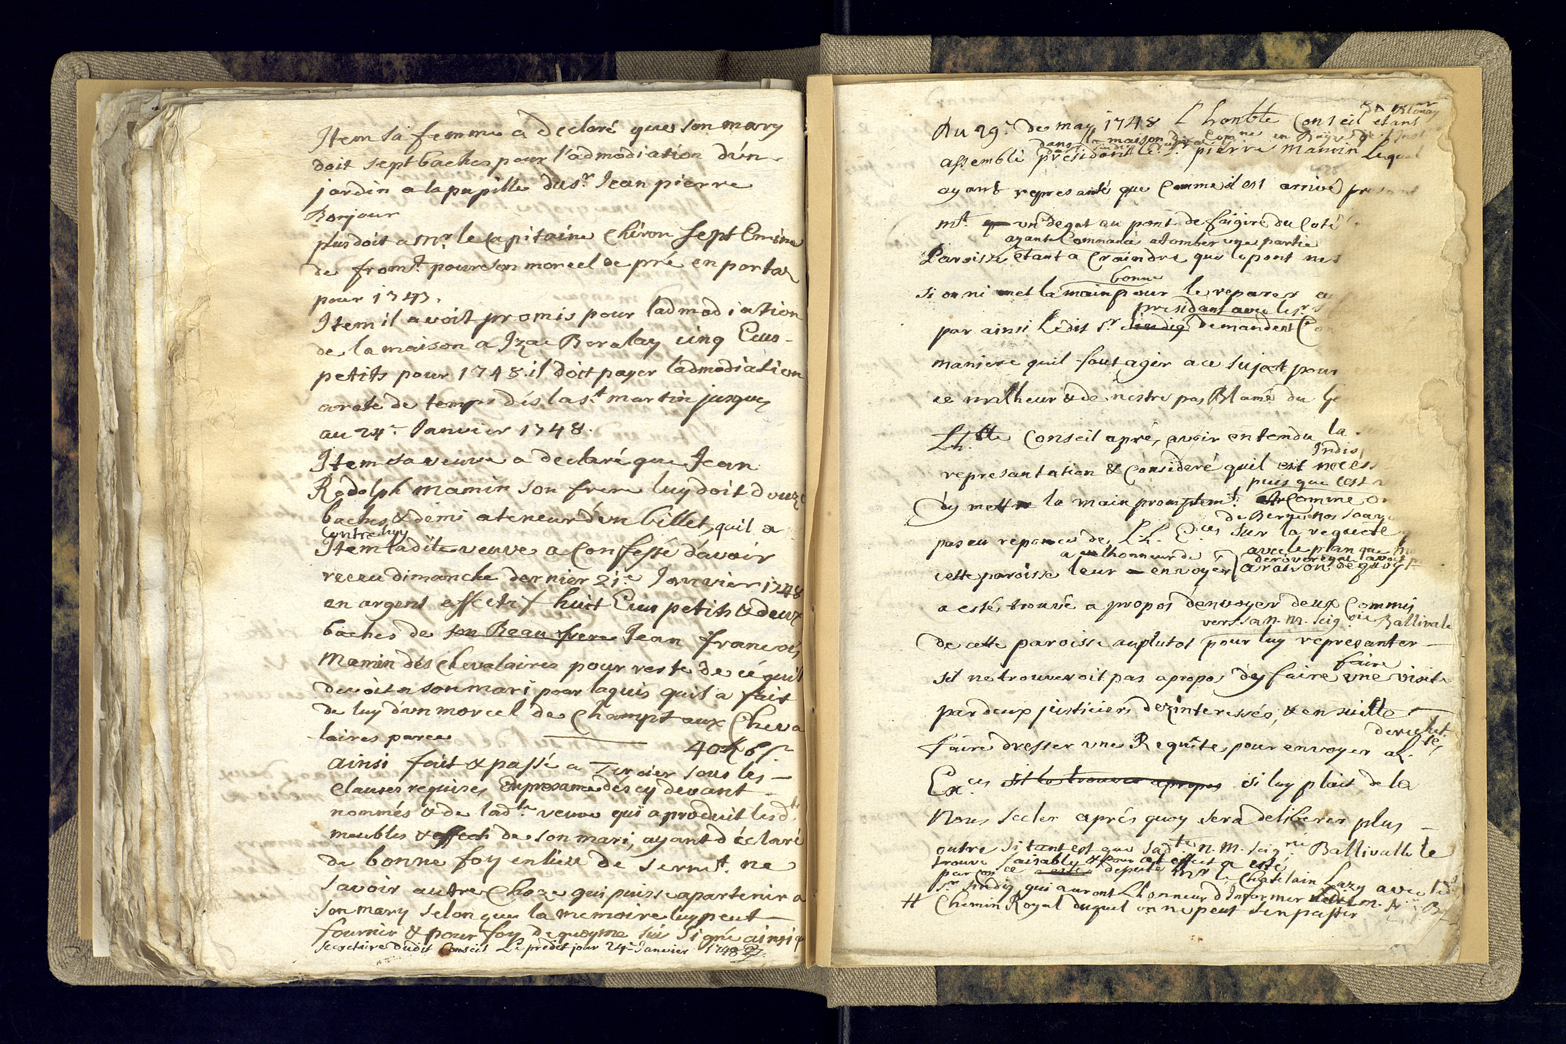 Item sa femme a declaré que son mary
doit sept baches pour l'admodiation d'un
jardin a la pupille du Sr Jean pierre
Bonjour
plus doit a Mr le Capitaine Chéron sept Emine
de fromt. pour son morcel de pré en portaz
pour 1747.
Item il avoit promis pour l'admodiation
de la maison a Izac Boralay cinq Ecus
petits pour 1748 il doit payer l'admodiation
a rate de temps dés la st martin jusques
au 24e Janvier 1748.
Item sa veuve a declaré que Jean
Rodolph Mamin son frere luy doit douze
baches & demi a teneur d'un billet, quil a
contre luy
Item ladite veuve a Confessé d'avoir
receu dimanche dernier 21e Janvier 1748
en argent effectif huit Ecus petits & deux
baches de son Beau frere Jean francois
Mamin des Chevalaires pour reste de ce quil
devoit a son mari pour laquis quil a fait
de luy d'un morcel de Champt aux Cheva
laires parce 40
ainsi fait & passé a sous les
clauses requises En presence des cy devant
nommés & de lad.te veuve qui a produit lesd.ts
meubles & effects de son mari, ayant déclaré
de bonne foy en lieu de sermt. ne
savoir autre Choze qui puisse apartenir a
son mary selon que la memoire luy peut
fournir & pour foy dequoy me suis signé ainsi
secretaire dudit Conseil Le predit jour 24e Janvier 1748
Du 29e de may 1748 L'honble Conseil etant
dans la maison de Comne en
assemblé président le Sr pierre Mamin lequel
ayant represanté que Comme il est arrivé
mt. un degat au pont de faigire du Coté
ayant Commancé a tomber une partie
Paroisse etant a Craindre que le pont
bonne
si on ni met la main pour le reparer
president avec le Sr
par ainsi Ledit Sr Sindiq demandent
maniere quil faut agir a ce sujet pour
ce malheur & de nestre pas Blamé du
L.h.ble Conseil aprés avoir entendu la
represantation & Consideré quil est
puis que cest
d'y mettre la main promptemt. Comme on
de Berne nos
pas eu reponce de LL. Ex.ces sur la requete
a l'honneur de avec le plan que
cette paroisse leur envoyer a raison de quoy
a esté trouvé a propos denvoyer deux Commis
vers sa n. m. seig.rie Ballivale
de cette paroisse auplutot pour luy representer
faire
sil ne trouveroit pas apropos d'y faire une visite
par deux justiciers dezinteressés & en suitte
derichef
faire dresser une Requête pour envoyer a
Ex.ces sil le trouve apropos si luy plait de la
Nous seeler aprés quoy sera deliberer plus
outre si tant est que sad.te n. m. seig.rie Ballivalle le
trouve faisable & pour cet effect a esté
par Con ce deputé Mr le Chatelain Lazy avec led.
Sr Sindiq qui auront L'honneur d'Informer
# Chemin Royal duquel on ne peut sen passer